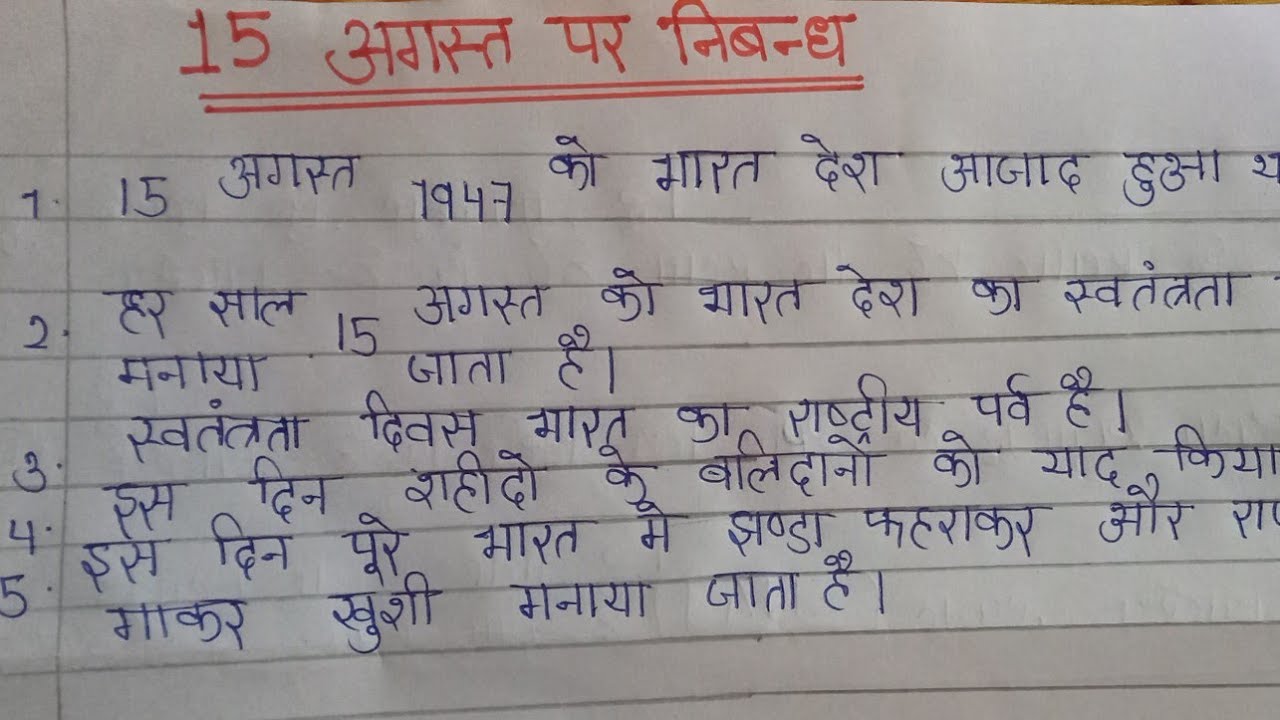 15 अगस्त पर निबन्ध
1. 15 अगस्त 1947 को भारत देश आजाद हुआ
2. हर साल 15 अगस्त को भारत देश का स्वतंत्रता
मनाया जाता है।
3. स्वतंत्रता दिवस भारत का राष्ट्रीय पर्व है।
4. इस दिन शहीदो के बलिदानों को याद किया
5. इस दिन पूरे भारत मे झण्डा फहराकर और
गाकर खुशी मनाया जाता है।